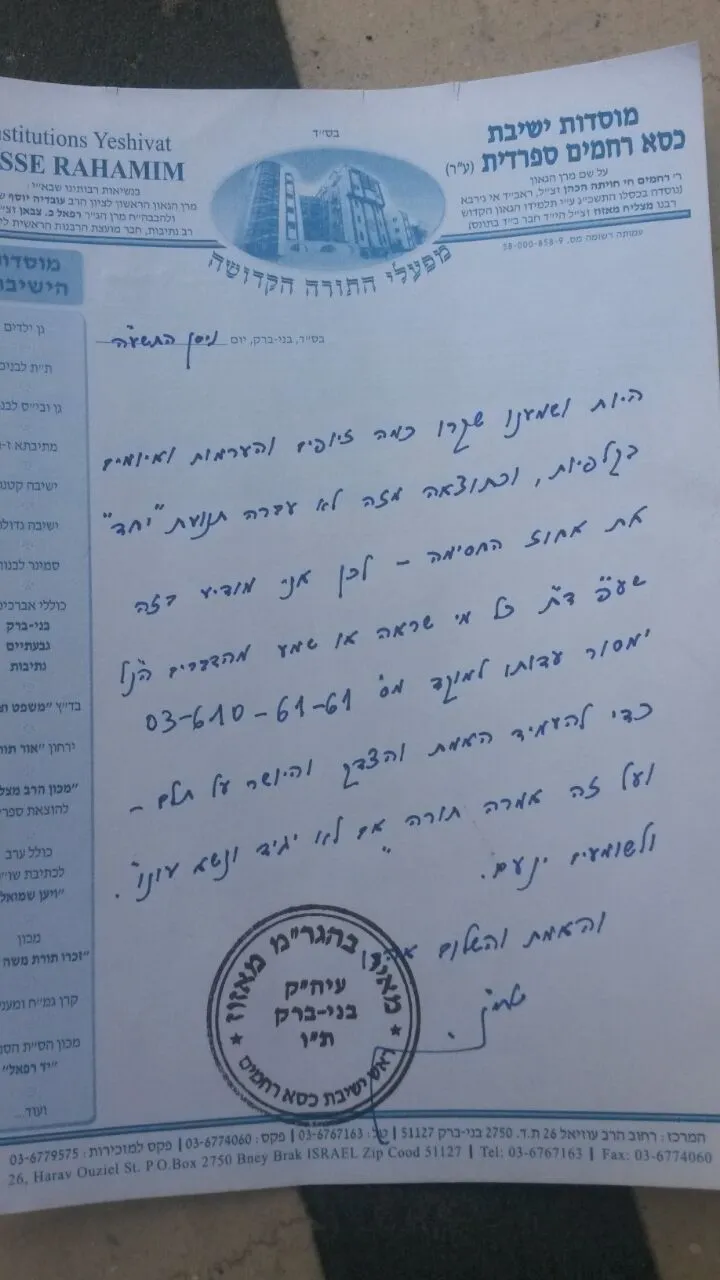 nstitutions Yeshivat
SSE RAHAMIM
בנשיאות רבותינו שבא"י:
מרן הגאון הראשון לציון הרב עובדיה יוסף
ולהבבה"ח מרן הגר"ר רפאל כ. צבאן
רב נתיבות, חבר מועצת הרבנות הראשית
בס"ד
מוסדות ישיבת
כסא רחמים ספרדית (ע"ר)
על שם מרן הגאון
ר' רחמים חי חויתה הכהן זצ"ל, ראב"ד אי ג'רבא
נוסדה בכסלו התשכ"ג ע"י תלמידו הגאון הקדוש
רבנו מצליח מאזוז זצ"ל הי"ד חבר ב"ד בתוניס
עמותה רשומה מס. 58-000-858-9
מפעלי התורה הקדושה
מוסדו
הישיבו
גן ילדים
ת"ת לבנים
גן ובי"ס לבנ
מתיבתא
ישיבה קטנה
ישיבה גדולה
סמינר לבנות
כוללי אברכים
בני-ברק
גבעתיים
נתיבות
בד"ץ "משפט
ירחון "אור תור
"מכון הרב מצל
להוצאת ספרי
כולל ערב
לכתיבת שו"
"ויען שמואל
מכון
"זכרו תורת משה
קרן גמ"ח ומענ
מכון הס"ת
"יד רפאל"
ועוד...
בס"ד, בני-ברק, יום ניסן התשע"ה
היות ושמענו שקרו כמה זיופים והערמות ואיומים
בקלפיות, וכתוצאה מזה לא עברה תנועת "יחד"
את אחוז החסימה – לכן אני מודיע בזה
שע"פ ד"ת כל מי שראה או שמע מהדברים הנ"ל
ימסור עדותו למוקד מס' 03-610-61-61
כדי להעמיד האמת והצדק והיושר על תלם –
ועל זה אמרה תורה "אם לא יגיד ונשא עונו".
ולשומעים ינעם.
והאמת והשלום
מאיר בהגר"מ מאזוז
עיה"ק
בני-ברק
ת"ו
ראש ישיבת כסא רחמים
המרכז: רחוב הרב עוזיאל 26 ת.ד. 2750 בני-ברק 51127 | טל: 03-6767163 | פקס: 03-6774060 | פקס למזכירות: 03-6779575
26, Harav Ouziel St. P.O.Box 2750 Bney Brak ISRAEL Zip Cood 51127 | Tel: 03-6767163 | Fax: 03-6774060